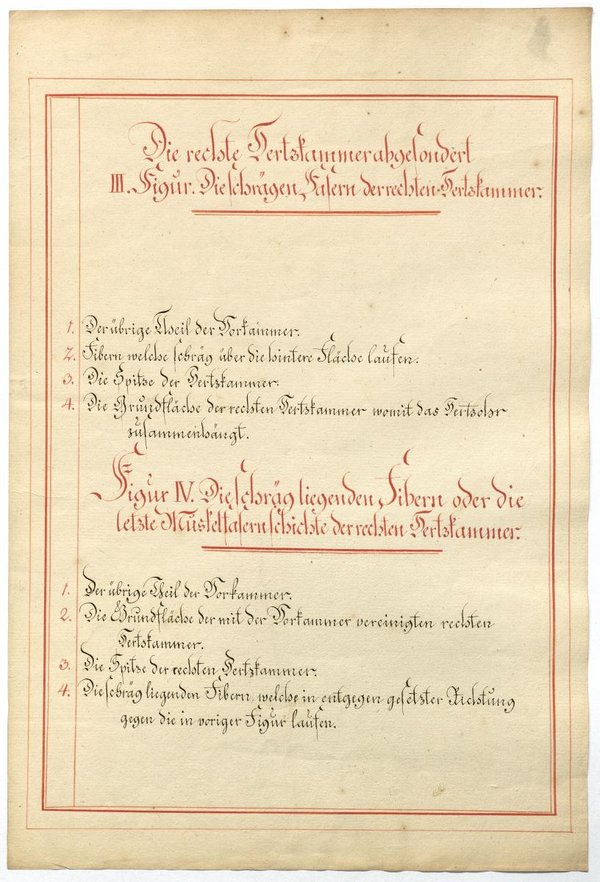 Die rechte Hertzkammer abgesondert
III. Figur. Die schrägen Fasern der rechten Hertzkammer.
1. Der übrige Theil der Vorkammer.
2. Fibern welche schräg über die hintere Fläche laufen.
3. Die Spitze der Hertzkammer.
4. Die Grundfläche der rechten Hertzkammer womit das Hertzohr
zusammenhängt.
Figur IV. Die schräg liegenden Fibern oder die
letzte Muskelfasernschichte der rechten Hertzkammer.
1. Der übrige Theil der Vorkammer.
2. Die Grundfläche der mit der Vorkammer vereinigten rechten
Hertzkammer.
3. Die Spitze der rechten Hertzkammer.
4. Die schräg liegenden Fibern, welche in entgegen gesetzter Richtung
gegen die in voriger Figur laufen.